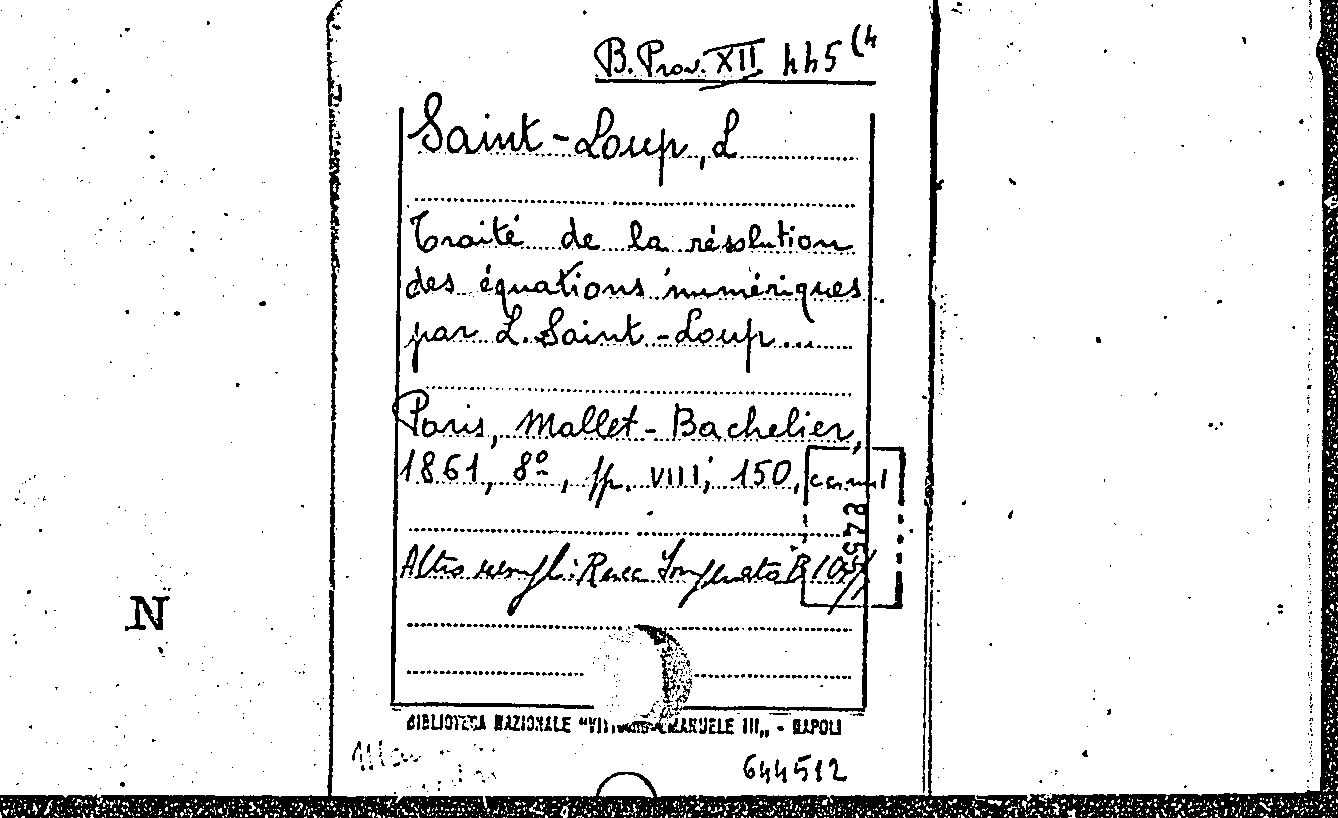 B. Prov. XII 445 (4
Saint-Loup, L
Traité de la résolution
des équations numériques
par L. Saint-Loup...
Paris, Mallet-Bachelier,
1861, 8º, pp. VIII, 150,
Altro
BIBLIOTECA NAZIONALE "VITTORIO EMANUELE III„ - NAPOLI
644512
N